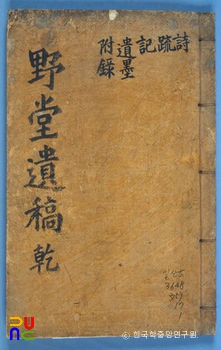 詩
疏
記
遺墨
附錄
野堂遺稿 乾
한국학중앙연구원